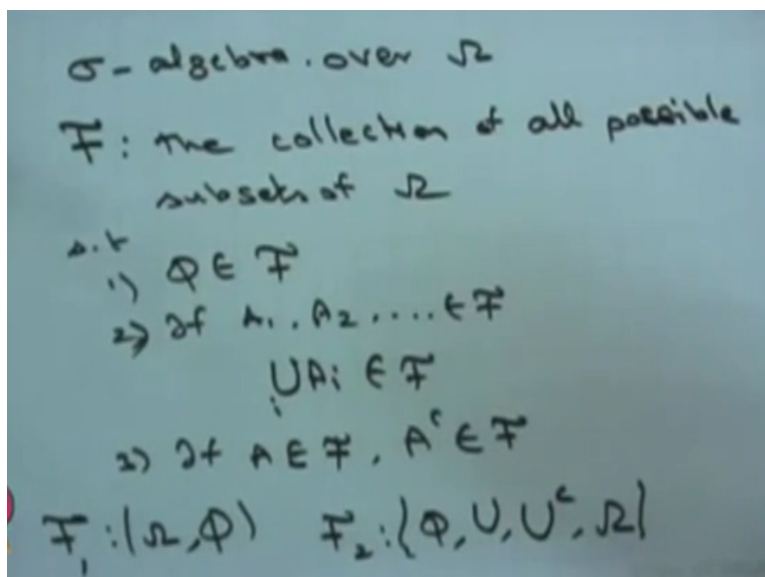 σ-algebra. over Ω
F: The collection of all possible
subsets of Ω
s.t
1) Φ ∈ F
2) If A₁, A₂, .... ∈ F
⋃ᵢ Aᵢ ∈ F
3) If A ∈ F, Aᶜ ∈ F
F₁: (Ω, Φ) F₂: {Φ, U, Uᶜ, Ω}